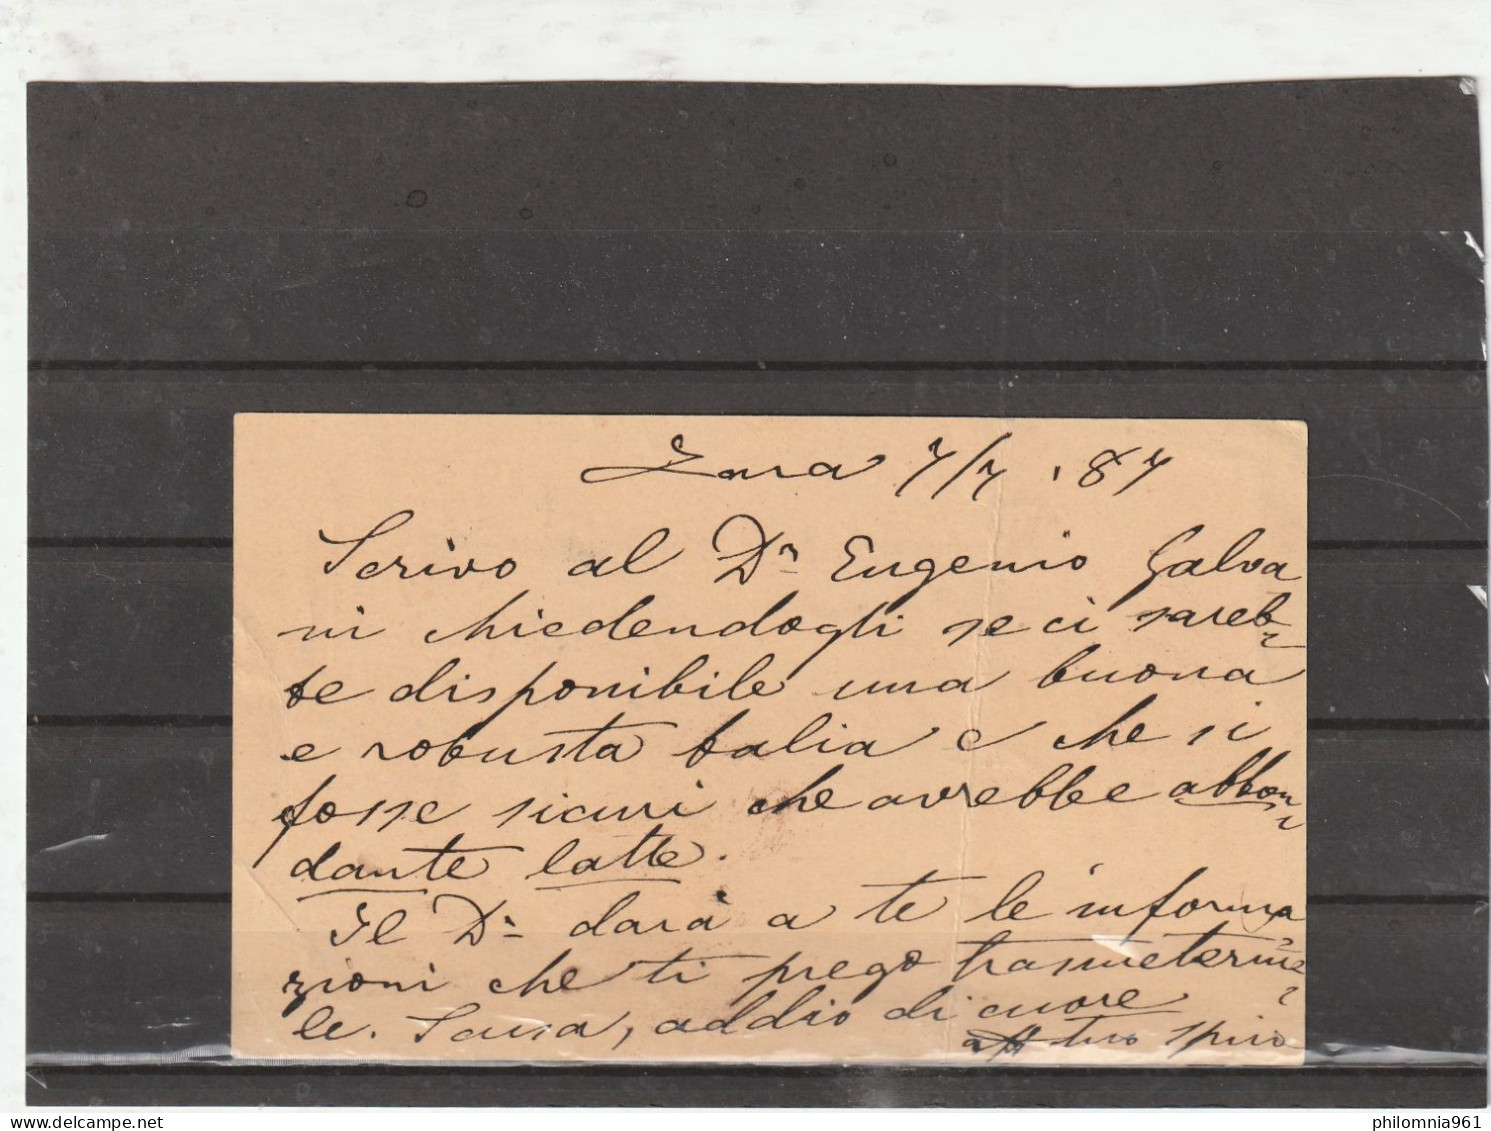 Zara 7/7 '87
Scrivo al Dr. Eugenio Galva
ni chiedendogli se ci sareb-
be disponibile una buona
e robusta balia e che si
fosse sicuri che avrebbe abbon-
dante latte.
Il Dr. darà a te le informa
zioni che ti prego trasmeterme-
le. Scusa, addio di cuore
aff tuo Spiro
philomnia961